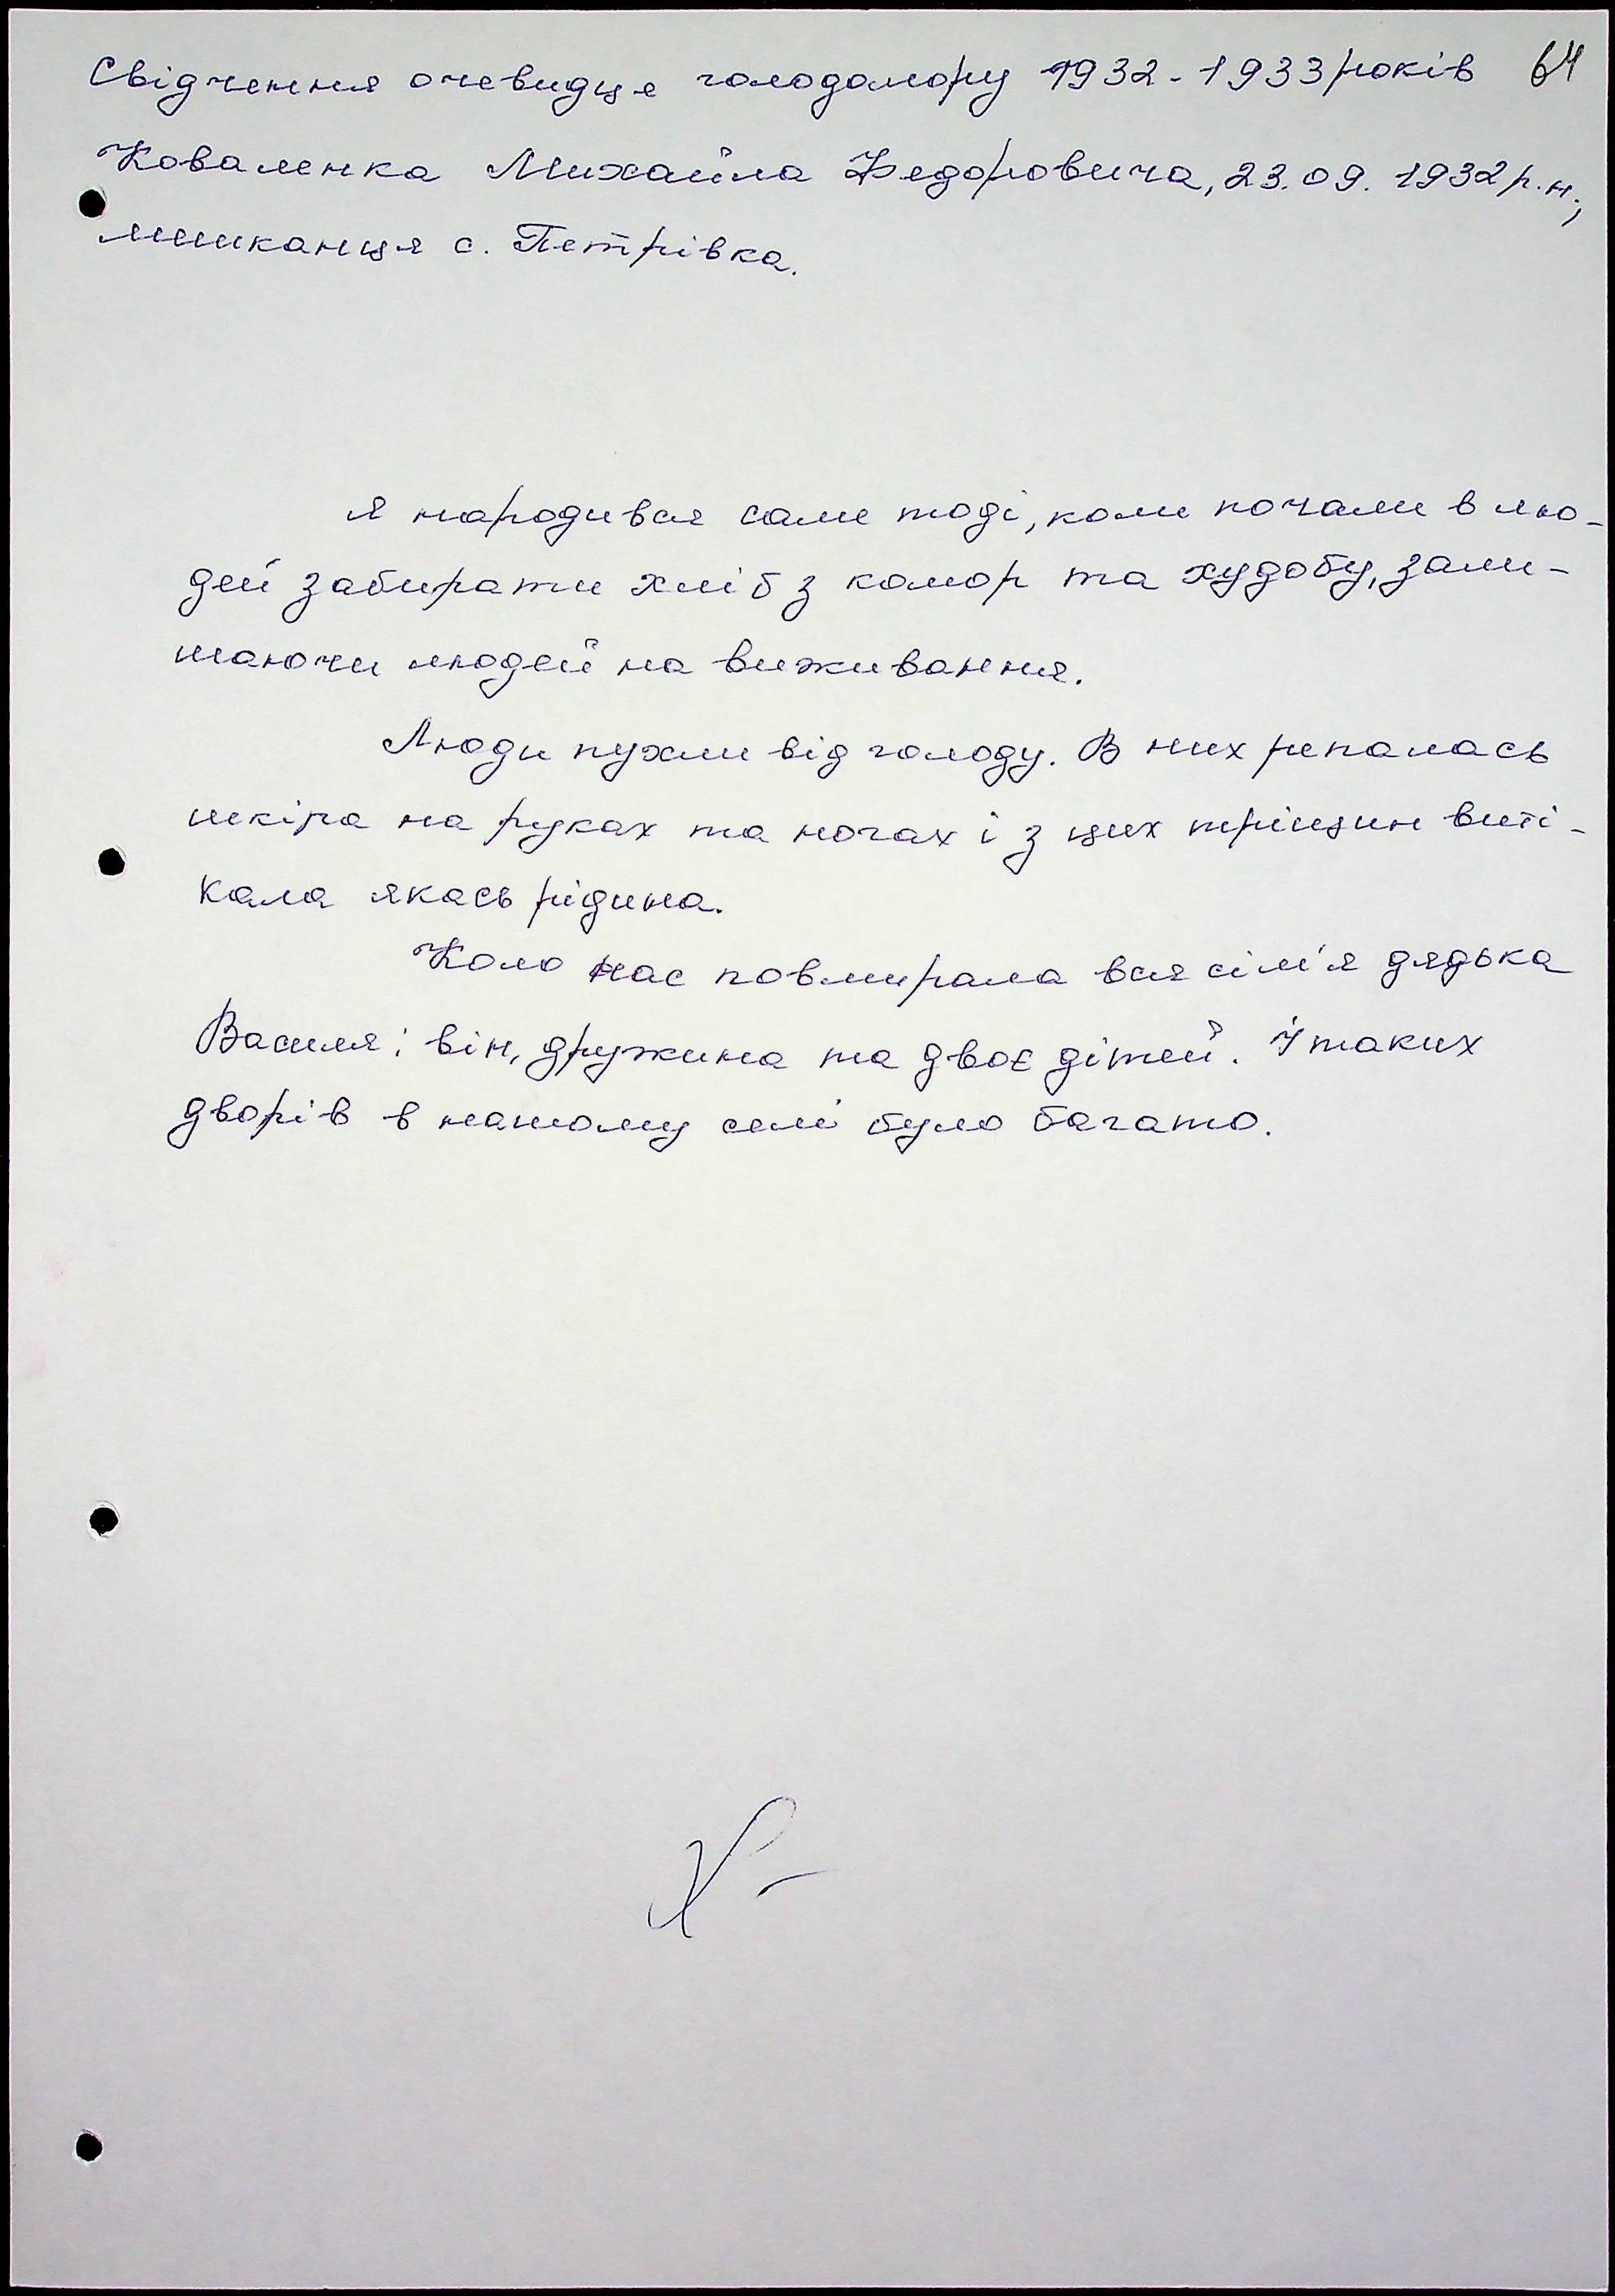 Свідчення очевидця голодомору 1932-1933 років 64
Коваленка Михайла Федоровича, 23.09.1932 р.н.,
мешканця с. Петрівка.
Я народився саме тоді, коли почали в лю-
дей забирати хліб з комор та худобу, зали-
шаючи людей на виживання.
Люди пухли від голоду. В них репалась
шкіра на руках та ногах і з цих тріщин виті-
кала якась рідина.
Коло нас повмирала вся сім'я дядька
Василя: він, дружина та двоє дітей. І таких
дворів в нашому селі було багато.